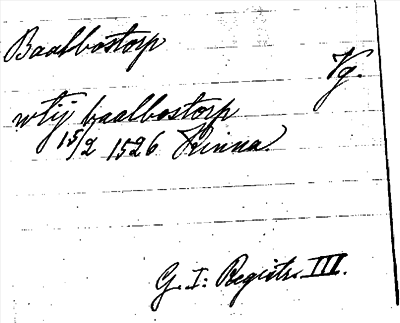 Baalbostorp
Vg.
wtij baalbostorp
15/2 1526 Kinna.
G. I: Registr. III.